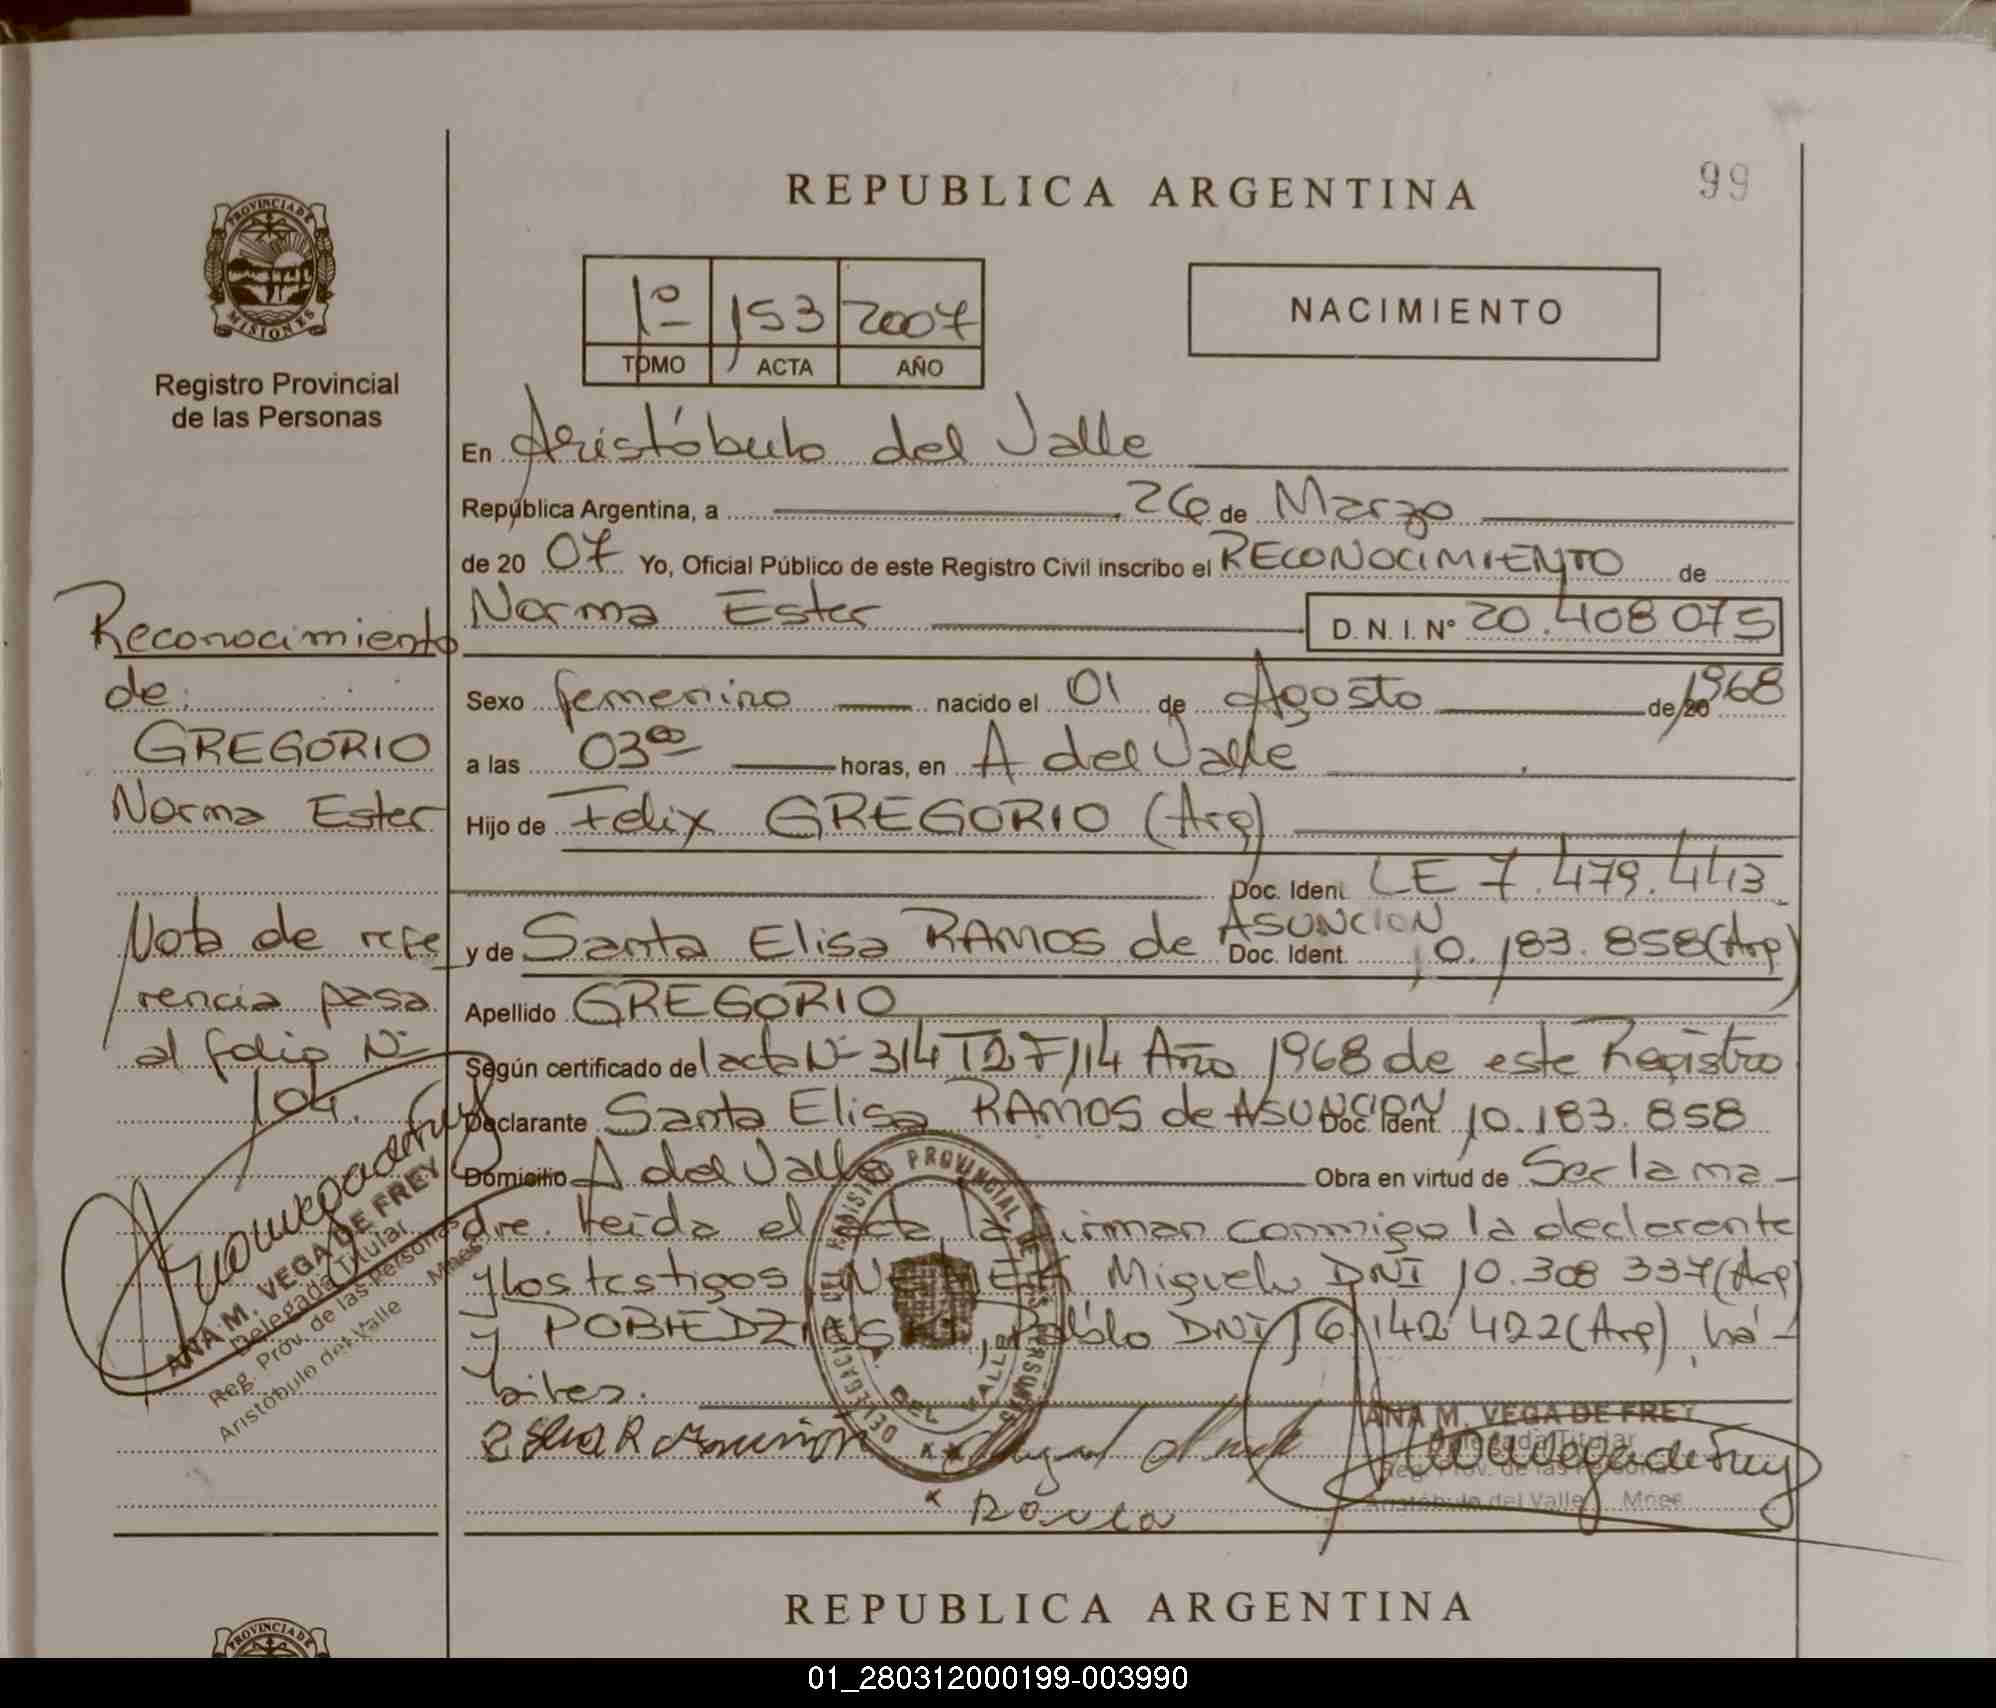 99
REPUBLICA ARGENTINA
PROVINCIA DE
MISIONES
Registro Provincial
de las Personas
1º 153 2007
TOMO ACTA AÑO
NACIMIENTO
En Aristóbulo del Valle
República Argentina, a 26 de Marzo
de 20 07 Yo, Oficial Público de este Registro Civil inscribo el RECONOCIMIENTO de
Norma Ester D. N. I. Nº 20.408 075
Sexo femenino nacido el 01 de Agosto de 20 1968
a las 03 00 horas, en A del Valle
Hijo de Felix GREGORIO (Arg)
Doc. Ident. LE 7.479.443
y de Santa Elisa RAMOS de ASUNCION Doc. Ident. 10.183.858 (Arg)
Apellido GREGORIO
Según certificado de l acta Nº 314 T2 F 114 Año 1968 de este Registro
Declarante Santa Elisa RAMOS de ASUNCION Doc. Ident. 10.183.858
Domicilio A del Valle Obra en virtud de Ser la ma-
dre. Leída el acta, la firman conmigo la declarante
y los testigos Miguel DNI 10.308 337 (Arg)
y Pablo DNI 16 142 422 (Arg), há-
biles.
Reconocimiento
de:
GREGORIO
Norma Ester
Nota de refe
rencia pasa
al folio Nº
104.
ANA M. VEGA DE FREY
Delegada Titular
Reg. Prov. de las Personas
Aristóbulo del Valle Mnes
DELEGACION DEL REGISTRO PROVINCIAL DE LAS PERSONAS
DEL VALLE
ANA M. VEGA DE FREY
Delegada Titular
Reg. Prov. de las Personas
Aristóbulo del Valle Mnes
REPUBLICA ARGENTINA
PROVINCIA DE
01_280312000199-003990